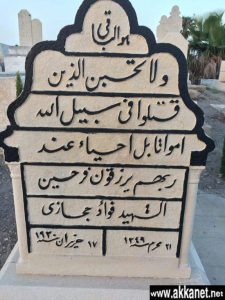 هو الباقي
ولا تحسبن الذين
قتلوا في سبيل الله
امواتا بل احياء عند
ربهم يرزقون فرحين
الشهيد فؤاد حجازي
٢١ محرم ١٣٤٩ ١٧ حزيران سنه ١٩٣٠
www.akkanet.net